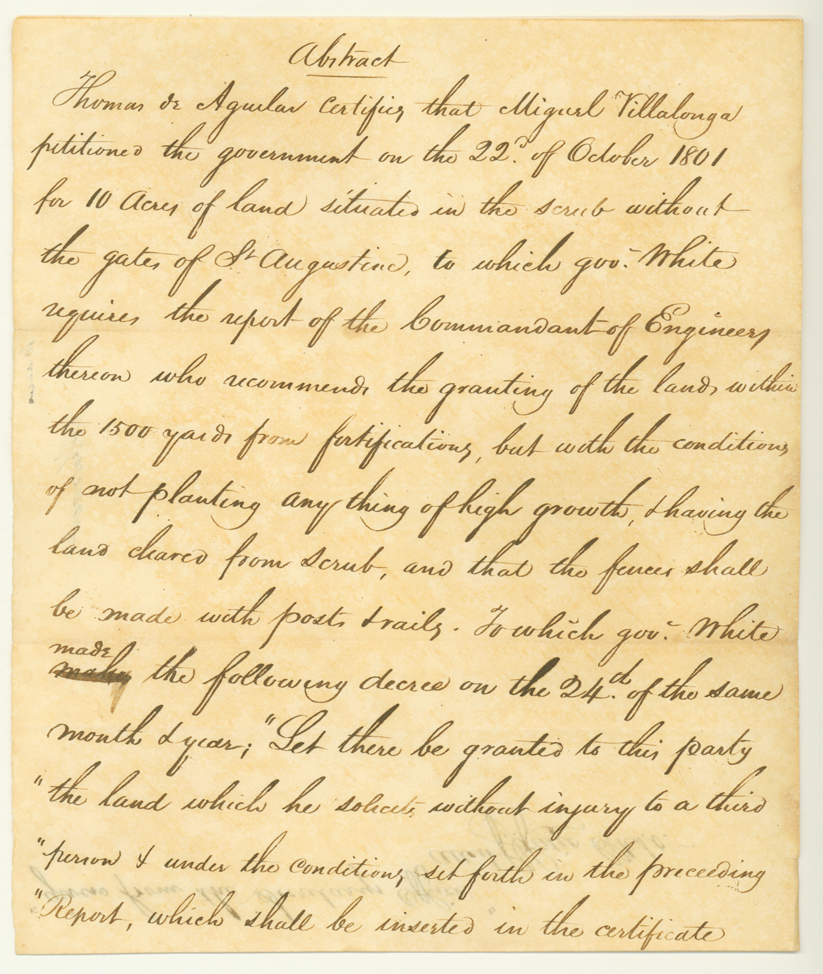 Abstract
Thomas de Aguilar certifies that Miguel Villalonga
petitioned the government on the 22d. of October 1801
for 10 Acres of land situated in the scrub without
the gates of St Augustine, to which gov.r White
requires the report of the Commandant of Engineers
thereon who recommends the granting of the lands within
the 1500 yards from fortifications, but with the conditions
of not planting any thing of high growth, & having the
land cleared from scrub, and that the fences shall
be made with posts & rails. To which gov.r White
made
makes the following decree on the 24.d of the same
month & year; "Let there be granted to this party
"the land which he solicits, without injury to a third
"person & under the conditions set forth in the preceeding
"Report, which shall be inserted in the certificate